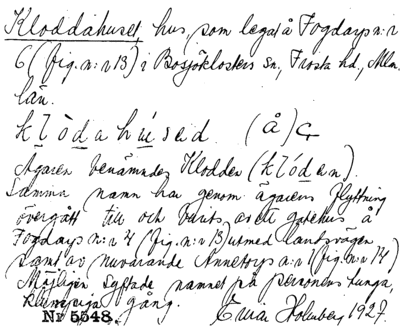 Kloddahuset hus, som legat å Fogdarps n:r
6 (fig. n:r 13) i Bosjöklosters sn, Frosta hd, Mlm.
län.
klòdahúsəd (å)
Ägaren benämndes Klodden (klódən).
Samma namn har genom ägarens flyttning
övergått till och burits av ett gatehus å
Fogdarps n:r 4 (fig. n:r 13) utmed landsvägen
samt av nuvarande Annetorps n:r 1 (fig. n:r 14)
Möjligen syftade namnet på personens tunga,
gång. Einar Holmberg 1927.
Nr 5548.